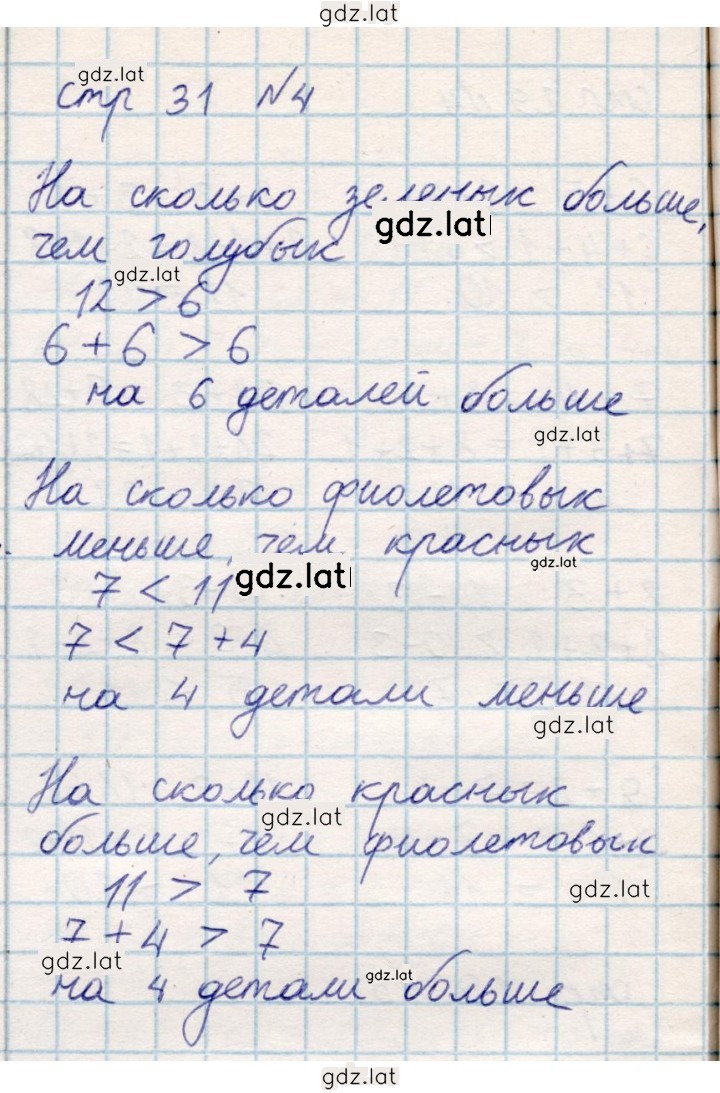 gdz.lat
gdz.lat
стр 31 №4
На сколько зеленых больше,
gdz.lat
чем голубых
gdz.lat
12 > 6
6 + 6 > 6
на 6 деталей больше
gdz.lat
На сколько фиолетовых
меньше, чем красных
gdz.lat
7 < 11
gdz.lat
7 < 7 + 4
на 4 детали меньше
gdz.lat
На сколько красных
gdz.lat
больше, чем фиолетовых
11 > 7
gdz.lat
7 + 4 > 7
gdz.lat
gdz.lat
на 4 детали больше
gdz.lat